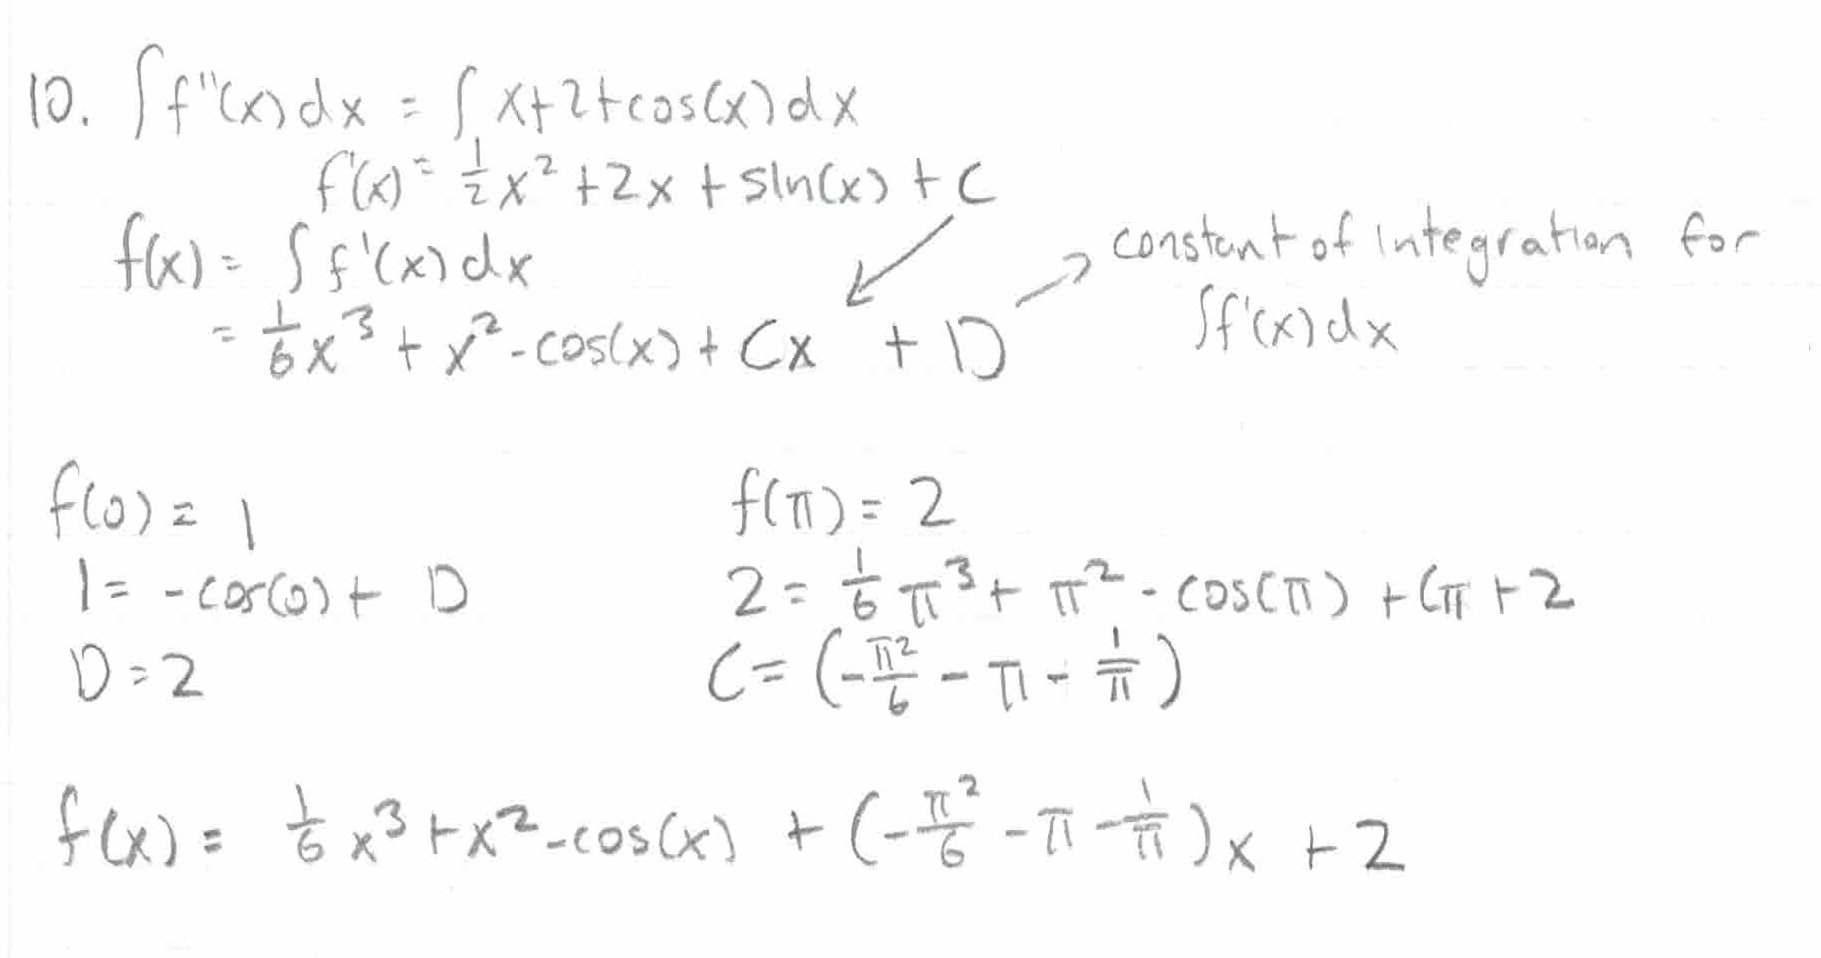 10. ∫f''(x)dx = ∫x+2+cos(x)dx
f'(x) = 1/2 x² + 2x + sin(x) + C
f(x) = ∫f'(x)dx
= 1/6 x³ + x² - cos(x) + Cx + D
constant of integration for
∫f'(x)dx
f(0) = 1
1 = -cos(0) + D
D = 2
f(π) = 2
2 = 1/6 π³ + π² - cos(π) + Cπ + 2
C = (-π²/6 - π - 1/π)
f(x) = 1/6 x³ + x² - cos(x) + (-π²/6 - π - 1/π)x + 2